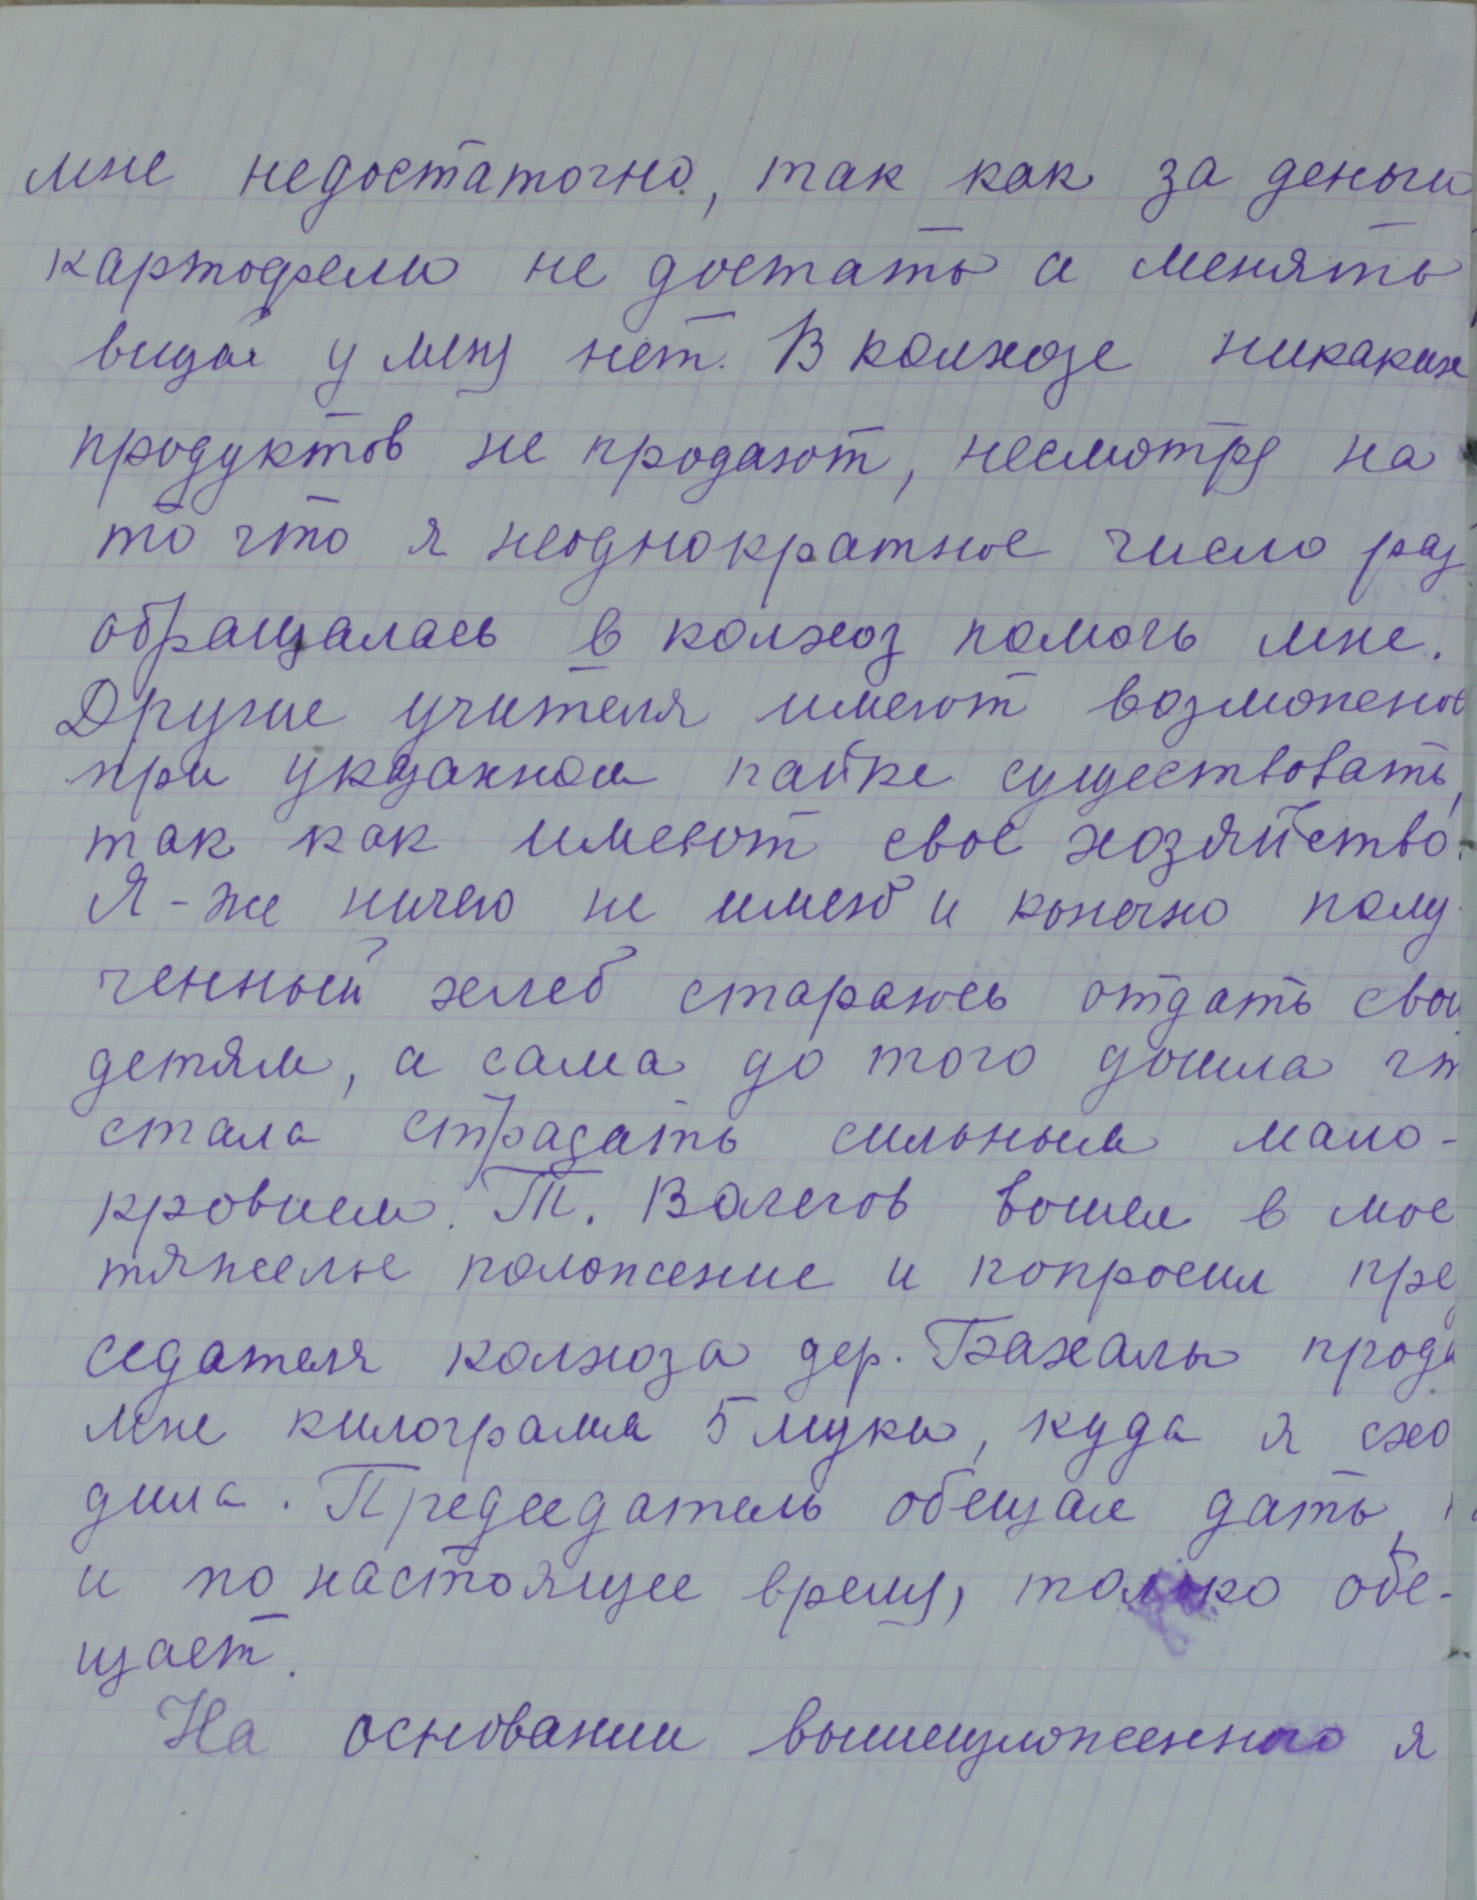 мне недостаточно, так как за деньги
картофели не достать а менять
вищей у меня нет. В колхозе никаких
продуктов не продают, несмотря на
то что я неоднократное число раз
обращалась в колхоз помочь мне.
Другие учителя имеют возможнос
при указанном пайке существовать,
так как имеют свое хозяйство.
Я-же ничего не имею и конечно полу
ченный хлеб стараюсь отдать свои
детям, а сама до того дошла чт
стала страдать сильным мало-
кровием. Т. Волегов вошел в мое
тяжелое положение и попросил пред
седателя колхоза дер. Бахалы прода
мне килограмм 5 муки, куда я схо
дила. Председатель обещал дать,
и по настоящее время, только обе-
щает.
На основании вышеизложенного я